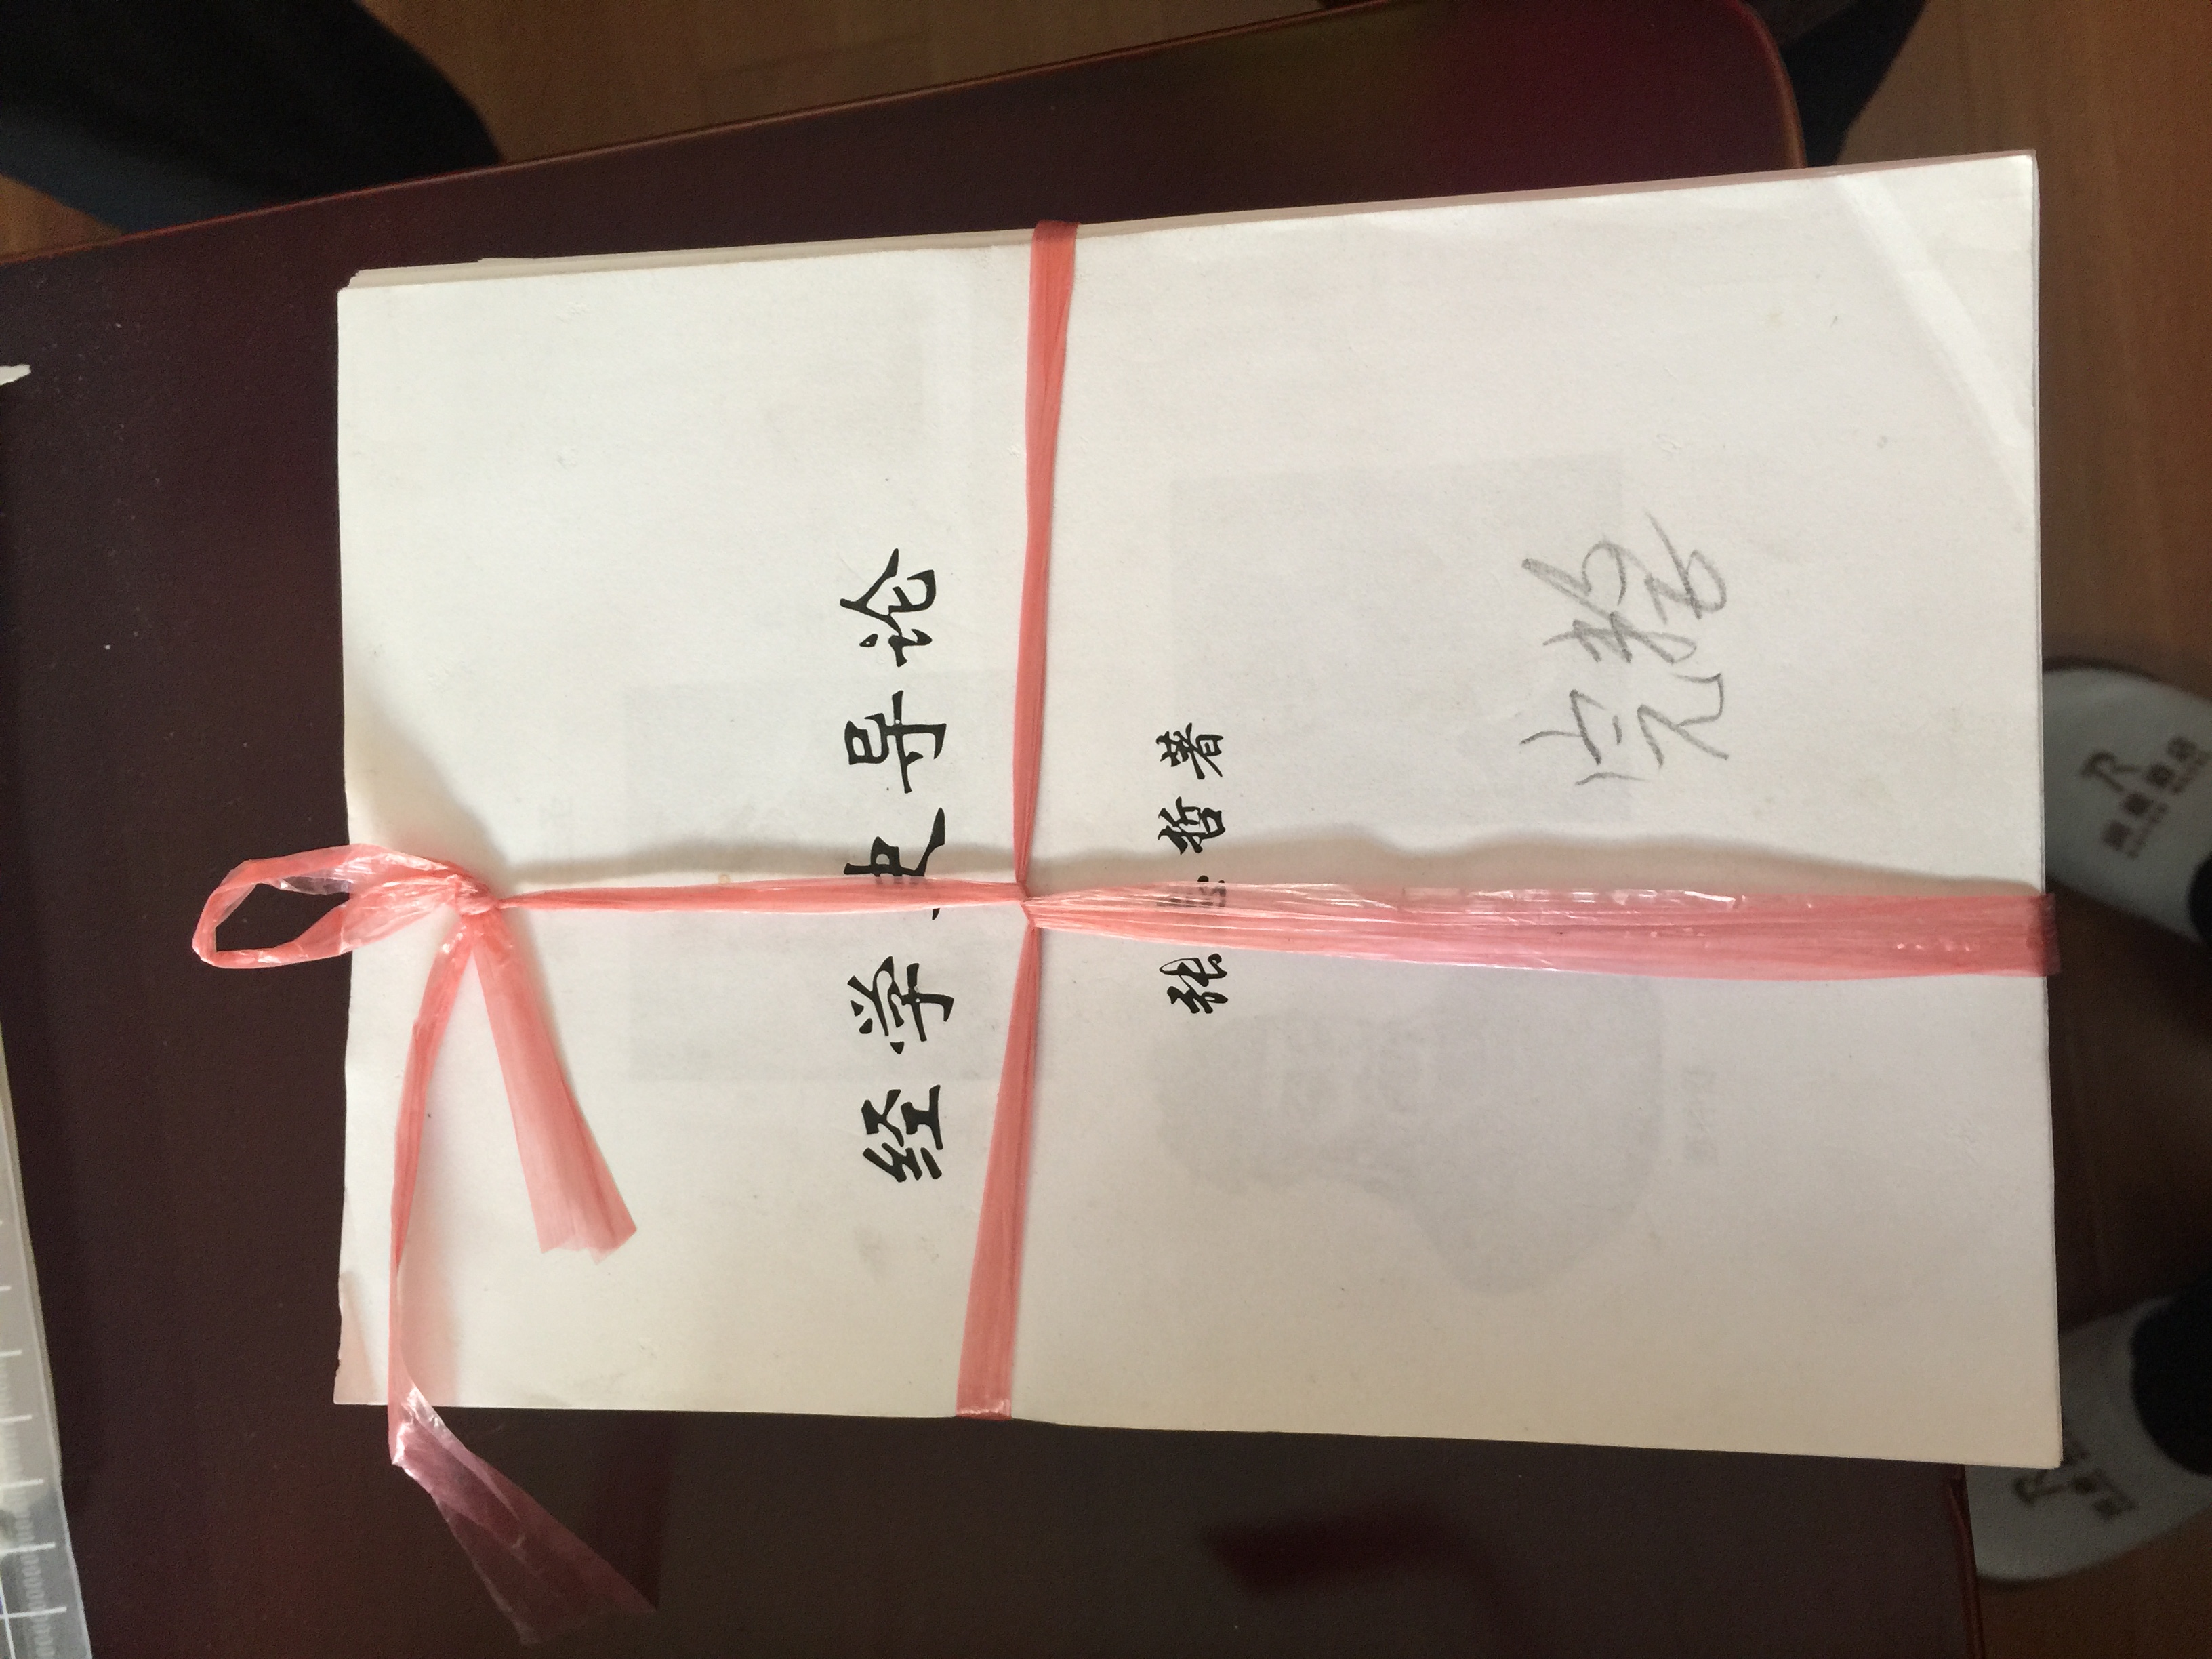 经学史导论
张 哲 著
完整